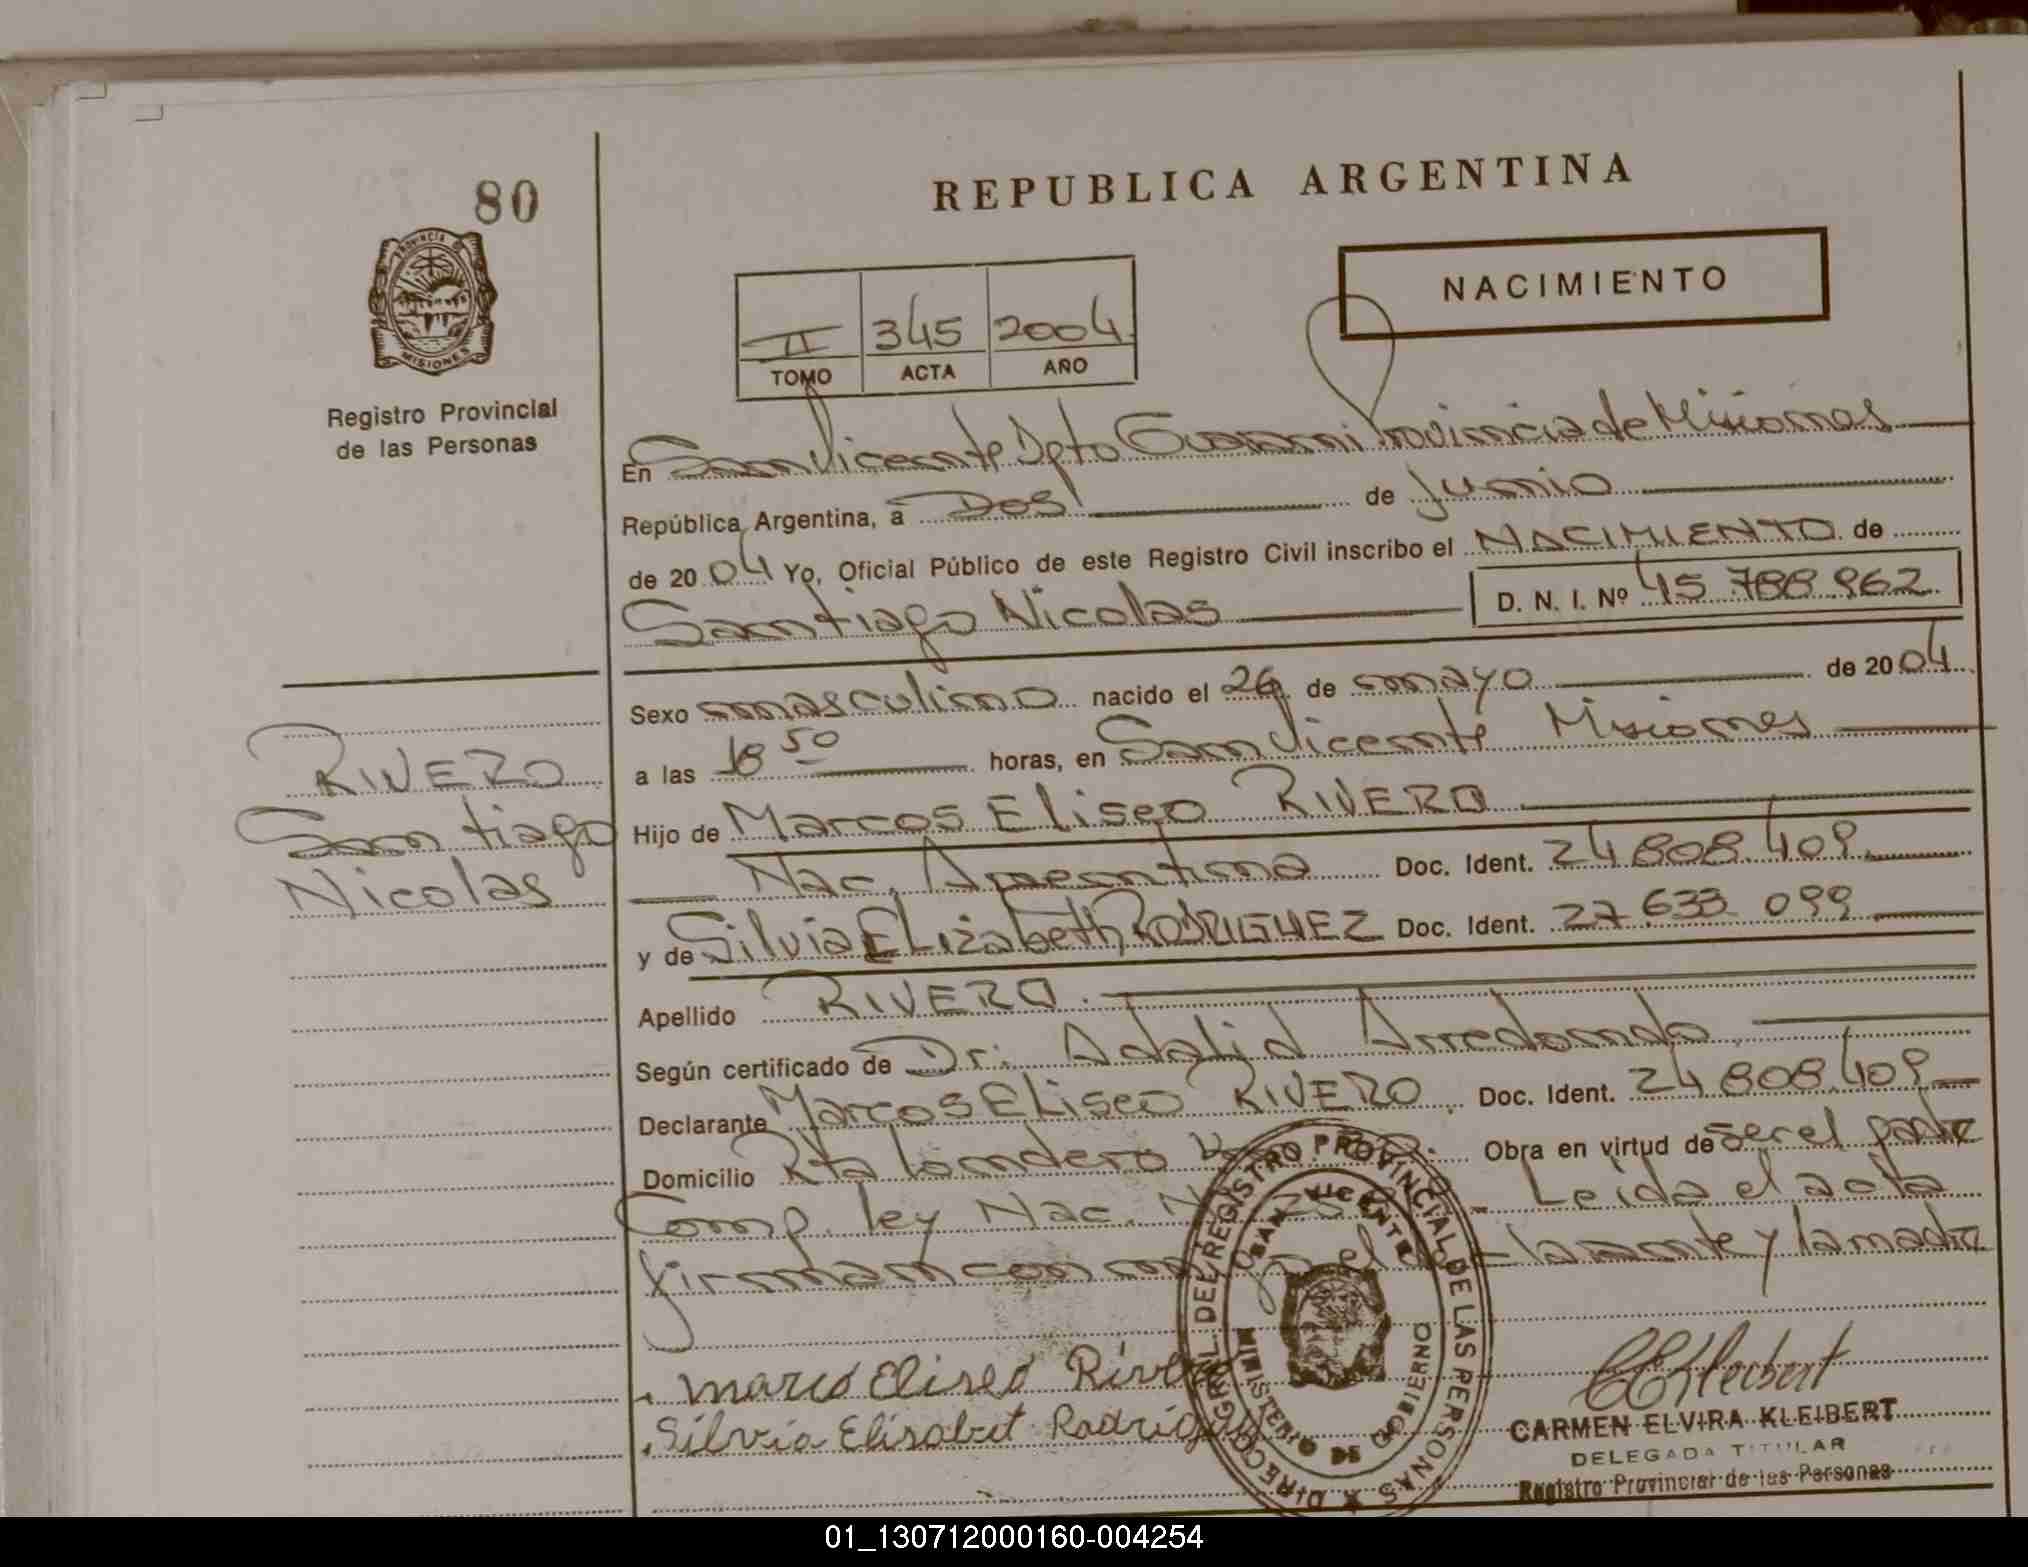 80
REPUBLICA ARGENTINA
PROVINCIA DE
MISIONES
Registro Provincial
de las Personas
II 345 2004
TOMO ACTA AÑO
NACIMIENTO
En San Vicente Dpto Guarani Provincia de Misiones
República Argentina, a Dos de Junio
de 2004 Yo, Oficial Público de este Registro Civil inscribo el NACIMIENTO de
Santiago Nicolas D. N. I. Nº 45 788 962
Sexo masculino nacido el 26 de mayo de 2004
a las 18 50 horas, en San Vicente Misiones
RIVERO
Santiago
Nicolas
Hijo de Marcos Eliseo RIVERO
Nac. Argentina Doc. Ident. 24 808 409
y de Silvia Elizabeth RODRIGUEZ Doc. Ident. 27 633 099
Apellido RIVERO
Según certificado de Dr: Adalid Arredondo
Declarante Marcos Eliseo RIVERO Doc. Ident. 24 808 409
Domicilio Rta londero Obra en virtud de ser el padre
Comp. ley Nac. Leida el acta
firman con el y la madre
marco Eliseo Rivero
Silvia Elisabet Rodrigu
DIRECC. GRAL. DEL REGISTRO PROVINCIAL DE LAS PERSONAS
SAN VICENTE
MINISTERIO DE GOBIERNO
CEKleibert
CARMEN ELVIRA KLEIBERT
DELEGADA TITULAR
Registro Provincial de las Personas
01_130712000160-004254